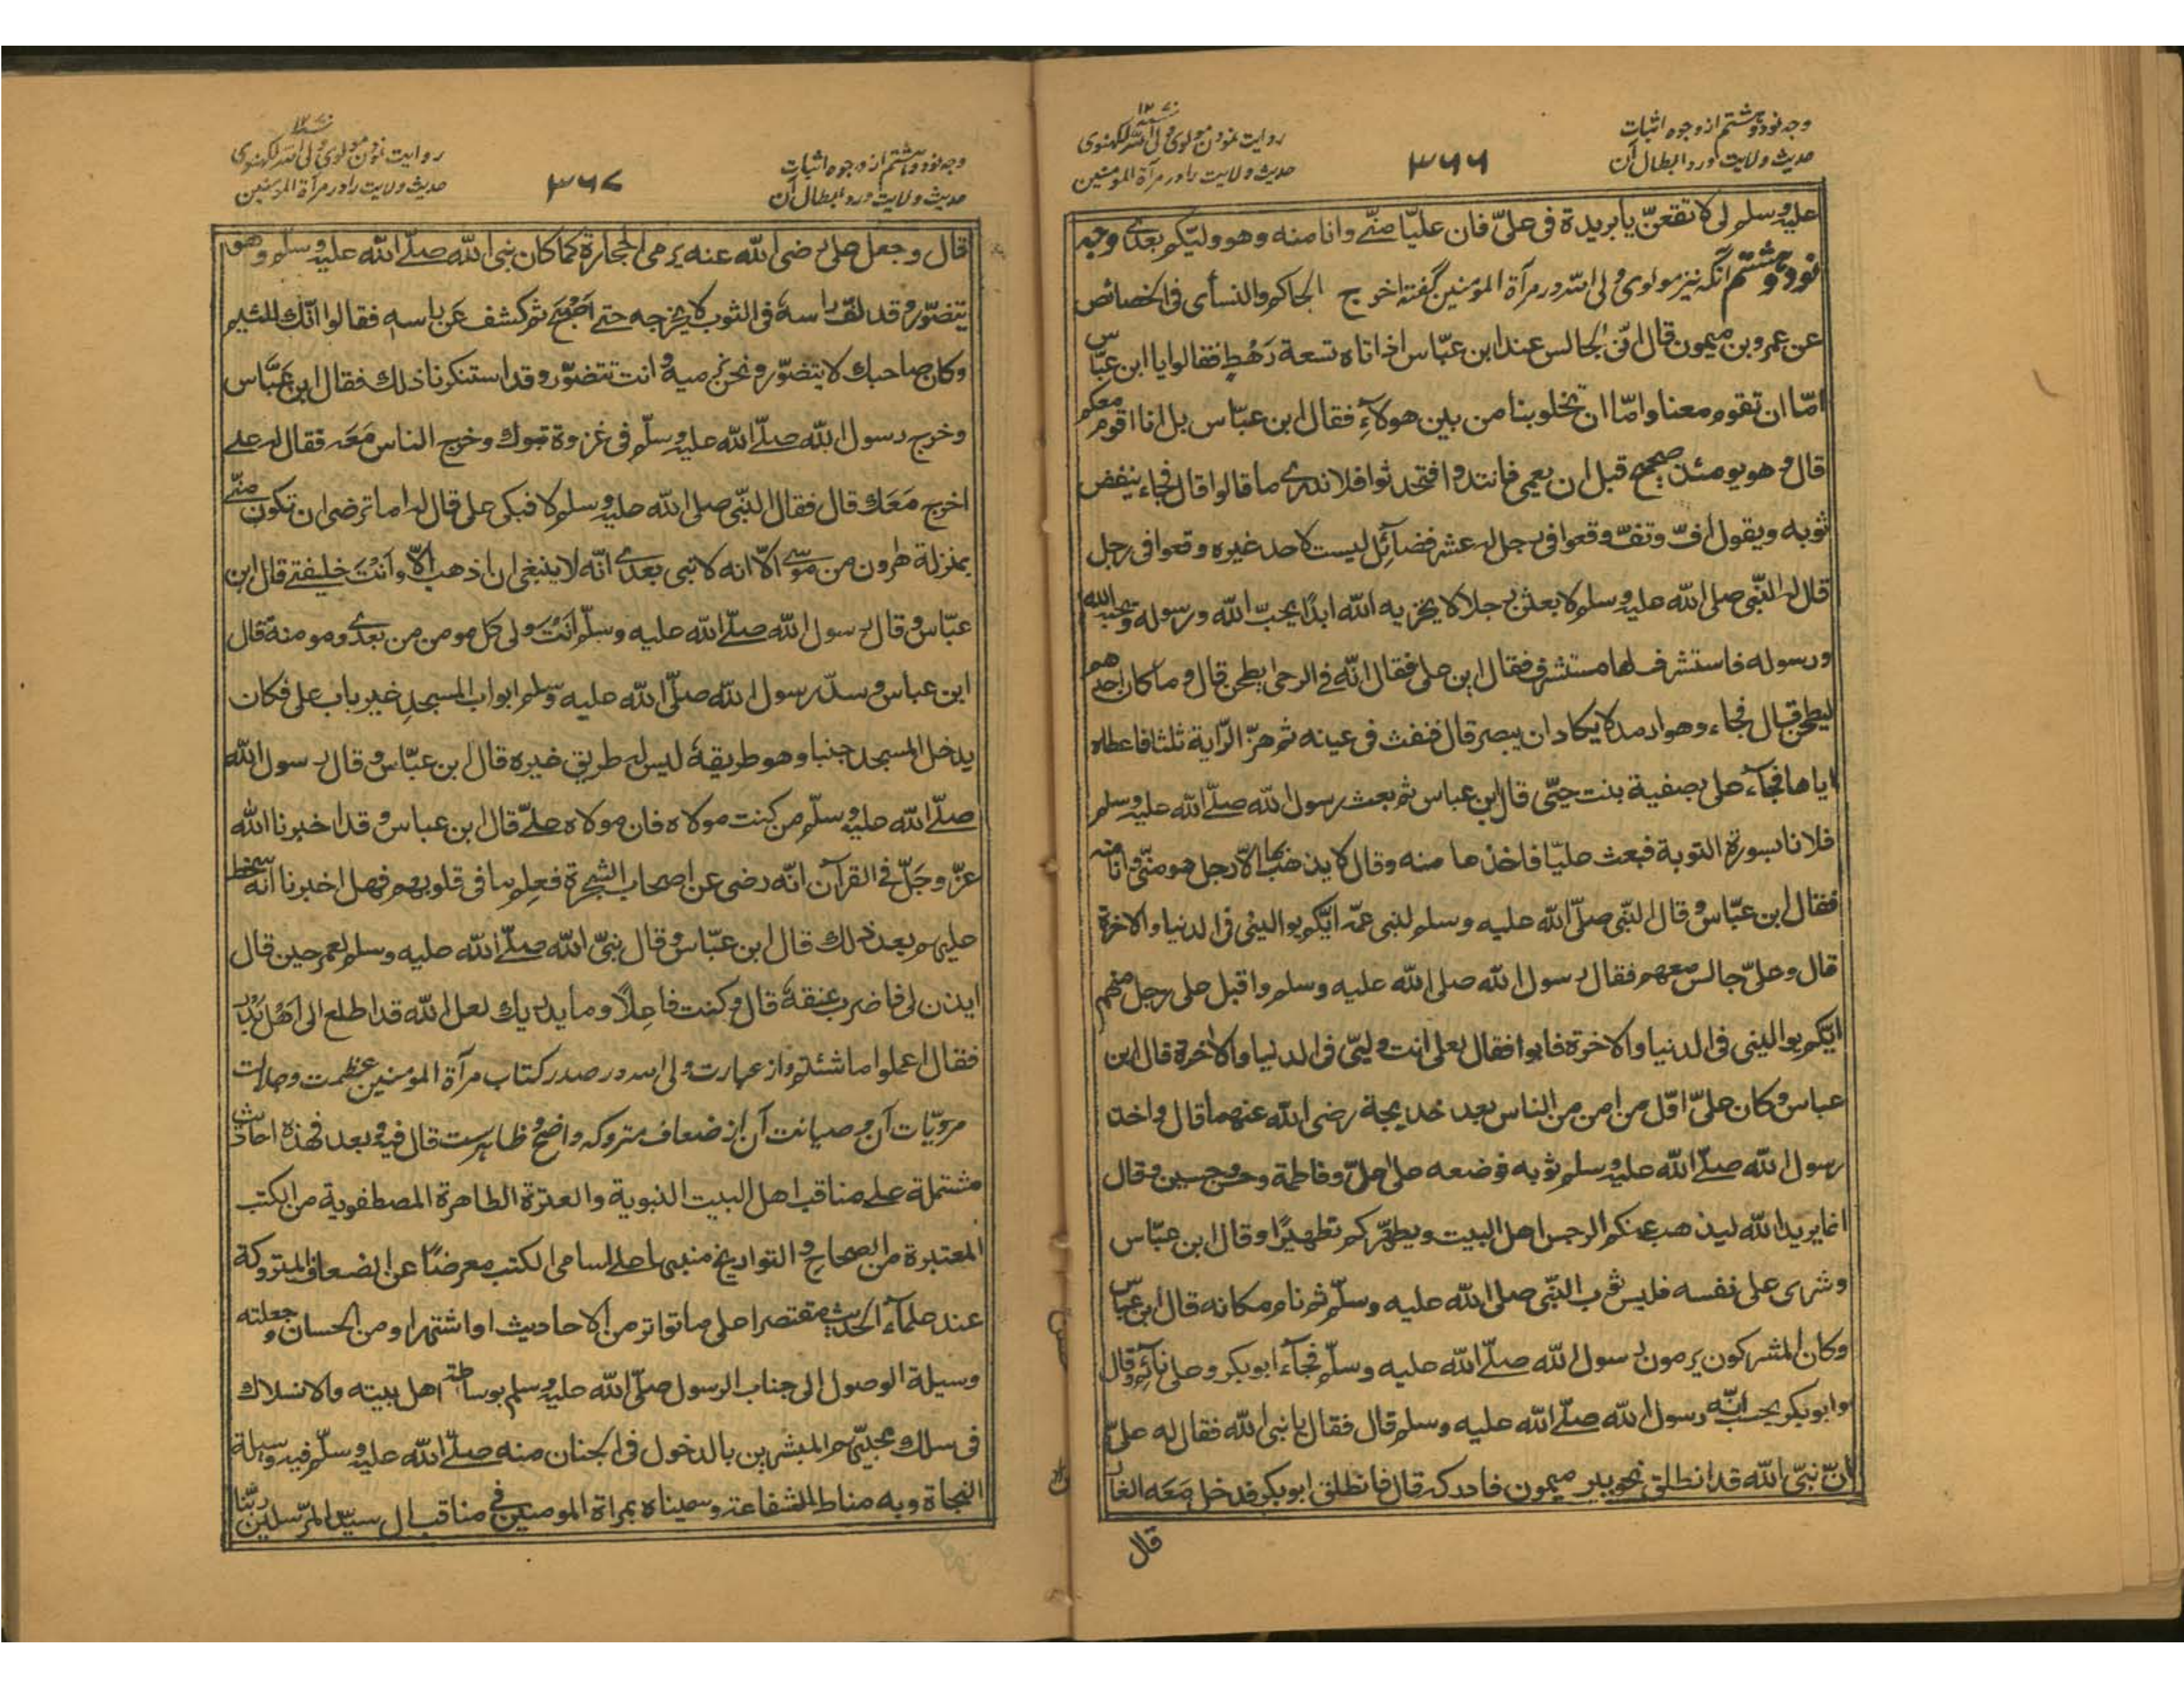 وجه نود و هشتم از وجوه اثبات
حدیث ولایت و رد ابطال آن
۳۶۶
روایت نمودن مولوی ولی الله لکهنوی
حدیث ولایت را در مرآة المؤمنین
علیه وسلم لی لا تقعنّ یا بریدة فی علیّ فان علیّا منّی وانا منه وهو ولیّکم بعدی وجه
نود و هشتم آنکه نیز مولوی ولی الله در مرآة المؤمنین گفته اخرج الحاکم والنسأی فی الخصائص
عن عمرو بن میمون قال انّی لجالس عند ابن عبّاس اذ اتاه تسعة رَهْطٍ فقالوا یا ابن عبّاس
امّا ان تقوم معنا وامّا ان تخلو بنا من بین هولآءِ فقال ابن عبّاس بل انا اقوم معکم
قال وهو یومئذ صحیح قبل ان یعمی فانتدوا فتحدثوا فلا ندری ما قالوا قال فجاء ینفض
ثوبه ویقول افّ وتفّ وقعوا فی رجل له عشر فضآئل لیست لاحد غیره وقعوا فی رجل
قال له النّبی صلی الله علیه وسلم لابعثن رجلا لا یخزیه الله ابدًا یحبّ الله ورسوله ویحبه الله
ورسوله فاستشرف لها مستشرف فقال این علی فقال انّه فی الرحی یطحن قال وما کان احدهم
لیطحن قال فجاء وهو ارمد لا یکاد ان یبصر قال فنفث فی عینه ثم هزّ الرّایة ثلثا فاعطاه
ایاها فجآء علی بصفیة بنت حیّی قال ابن عباس ثم بعث رسول الله صلّی الله علیه وسلم
فلانا بسورة التوبة فبعث علیّا فاخذها منه وقال لا یذهب بها الّا رجل هو منّی وانا منه
فقال ابن عبّاس وقال النّبی صلّی الله علیه وسلم لبنی عمّه ایّکم یوالینی فی الدنیا والاخرة
قال وعلیّ جالس معهم فقال رسول الله صلی الله علیه وسلم واقبل علی رجل منهم
ایّکم یوالینی فی الدنیا والاخرة فابوا فقال لعلی انت ولیّی فی الدنیا والاخرة قال ابن
عباس وکان علیّ اوّل من امن من الناس بعد خدیجة رضی الله عنهما قال واخذ
رسول الله صلّی الله علیه وسلم ثوبه فوضعه علی علیّ وفاطمة وحسن وحسین وقال
انما یرید الله لیذهب عنکم الرجس اهل البیت ویطهّرکم تطهیرًا وقال ابن عبّاس
وشری علی نفسه فلبس ثوب النّبی صلی الله علیه وسلّم ثم نام مکانه قال ابن عباس
وکان المشرکون یرمون رسول الله صلّی الله علیه وسلّم فجآء ابو بکر وعلی نآئم وقال
وابو بکر یحسب انّه رسول الله صلّی الله علیه وسلم قال فقال یا نبی الله فقال له علیّ
انّ نبیّ الله قد انطلق نحو بیر میمون فادرکه قال فانطلق ابو بکر فدخل مَعَه الغار
قال
وجه نود و هشتم از وجوه اثبات
حدیث ولایت و رد ابطال آن
۳۶۷
روایت نمودن مولوی ولی الله لکهنوی
حدیث ولایت را در مرآة المؤمنین
قال وجعل علی رضی الله عنه یرمی الحجارة کما کان نبی الله صلّی الله علیه وسلّم وهو
یتضوّر وقد لفّ راسه فی الثوب لا یخرجه حتی اَصْبَحَ ثم کشف عن راسه فقالوا انّک للئیم
وکان صاحبک لا یتضوّر ونحن نرمیه وانت تتضوّر وقد استنکرنا ذلک فقال ابن عَبَّاس
وخرج رسول الله صلّی الله علیه وسلّم فی غزوة تبوک وخرج الناس مَعَه فقال له علی
اخرج مَعَک قال فقال النّبی صلی الله علیه وسلم لا فبکی علی قال له اما ترضی ان تکون منّی
بمنزلة هٰرون من موسی الّا انه لا نبی بعدی انّه لا ینبغی ان اذهب الّا وانت خلیفتی قال ابن
عبّاس وقال رسول الله صلّی الله علیه وسلّم انت ولی کل مومن من بعدی ومومنة قال
ابن عباس وسدّ رسول الله صلّی الله علیه وسلم ابواب المسجد غیر باب علی فکان
یدخل المسجد جنبا وهو طریقهٔ لیس له طریق غیره قال ابن عبّاس وقال رسول الله
صلّی الله علیه وسلّم من کنت مولاه فان مولاه علیّ قال ابن عباس وقد اخبرنا الله
عزّ وجَلّ فی القرآن انّه رضی عن اصحاب الشجرة فعلم ما فی قلوبهم فهل اخبرنا انّه سخط
علیهم بعد ذلک قال ابن عبّاس وقال نبیّ الله صلّی الله علیه وسلم لعمر حین قال
ایذن لی فاضرب عنقهٔ قال وکنت فاعلًا وما یدریک لعل الله قد اطلع الی اَهْل بَدْر
فقال اعملوا ما شئتم واز عبارت ولی الله در صدر کتاب مرآة المؤمنین عظمت وجلالت
مرویّات آن وصیانت آن از ضعاف متروکه واضح وظاهرست قال فیه وبعد فهذه احادیث
مشتملة علی مناقب اهل البیت النبویة والعترة الطاهرة المصطفویة من الکتب
المعتبرة من الصحاح والتواریخ منبها علی اسامی الکتب معرضًا عن الضعاف المتروکة
عند علمآء الحدیث مقتصرا علی ما تواتر من الاحادیث او اشتهر او من الحسان وجعلته
وسیلة الوصول الی جناب الرسول صلّی الله علیه وسلم بوساطة اهل بیته والانسلاک
فی سلک محبّیهم المبشرین بالدخول فی الجنان منه صلّی الله علیه وسلّم فیه وسیلة
النجاة وبه مناط الشفاعة وسمیناه بمراة المومنین فی مناقب ال سیّد المرسلین ربّنا